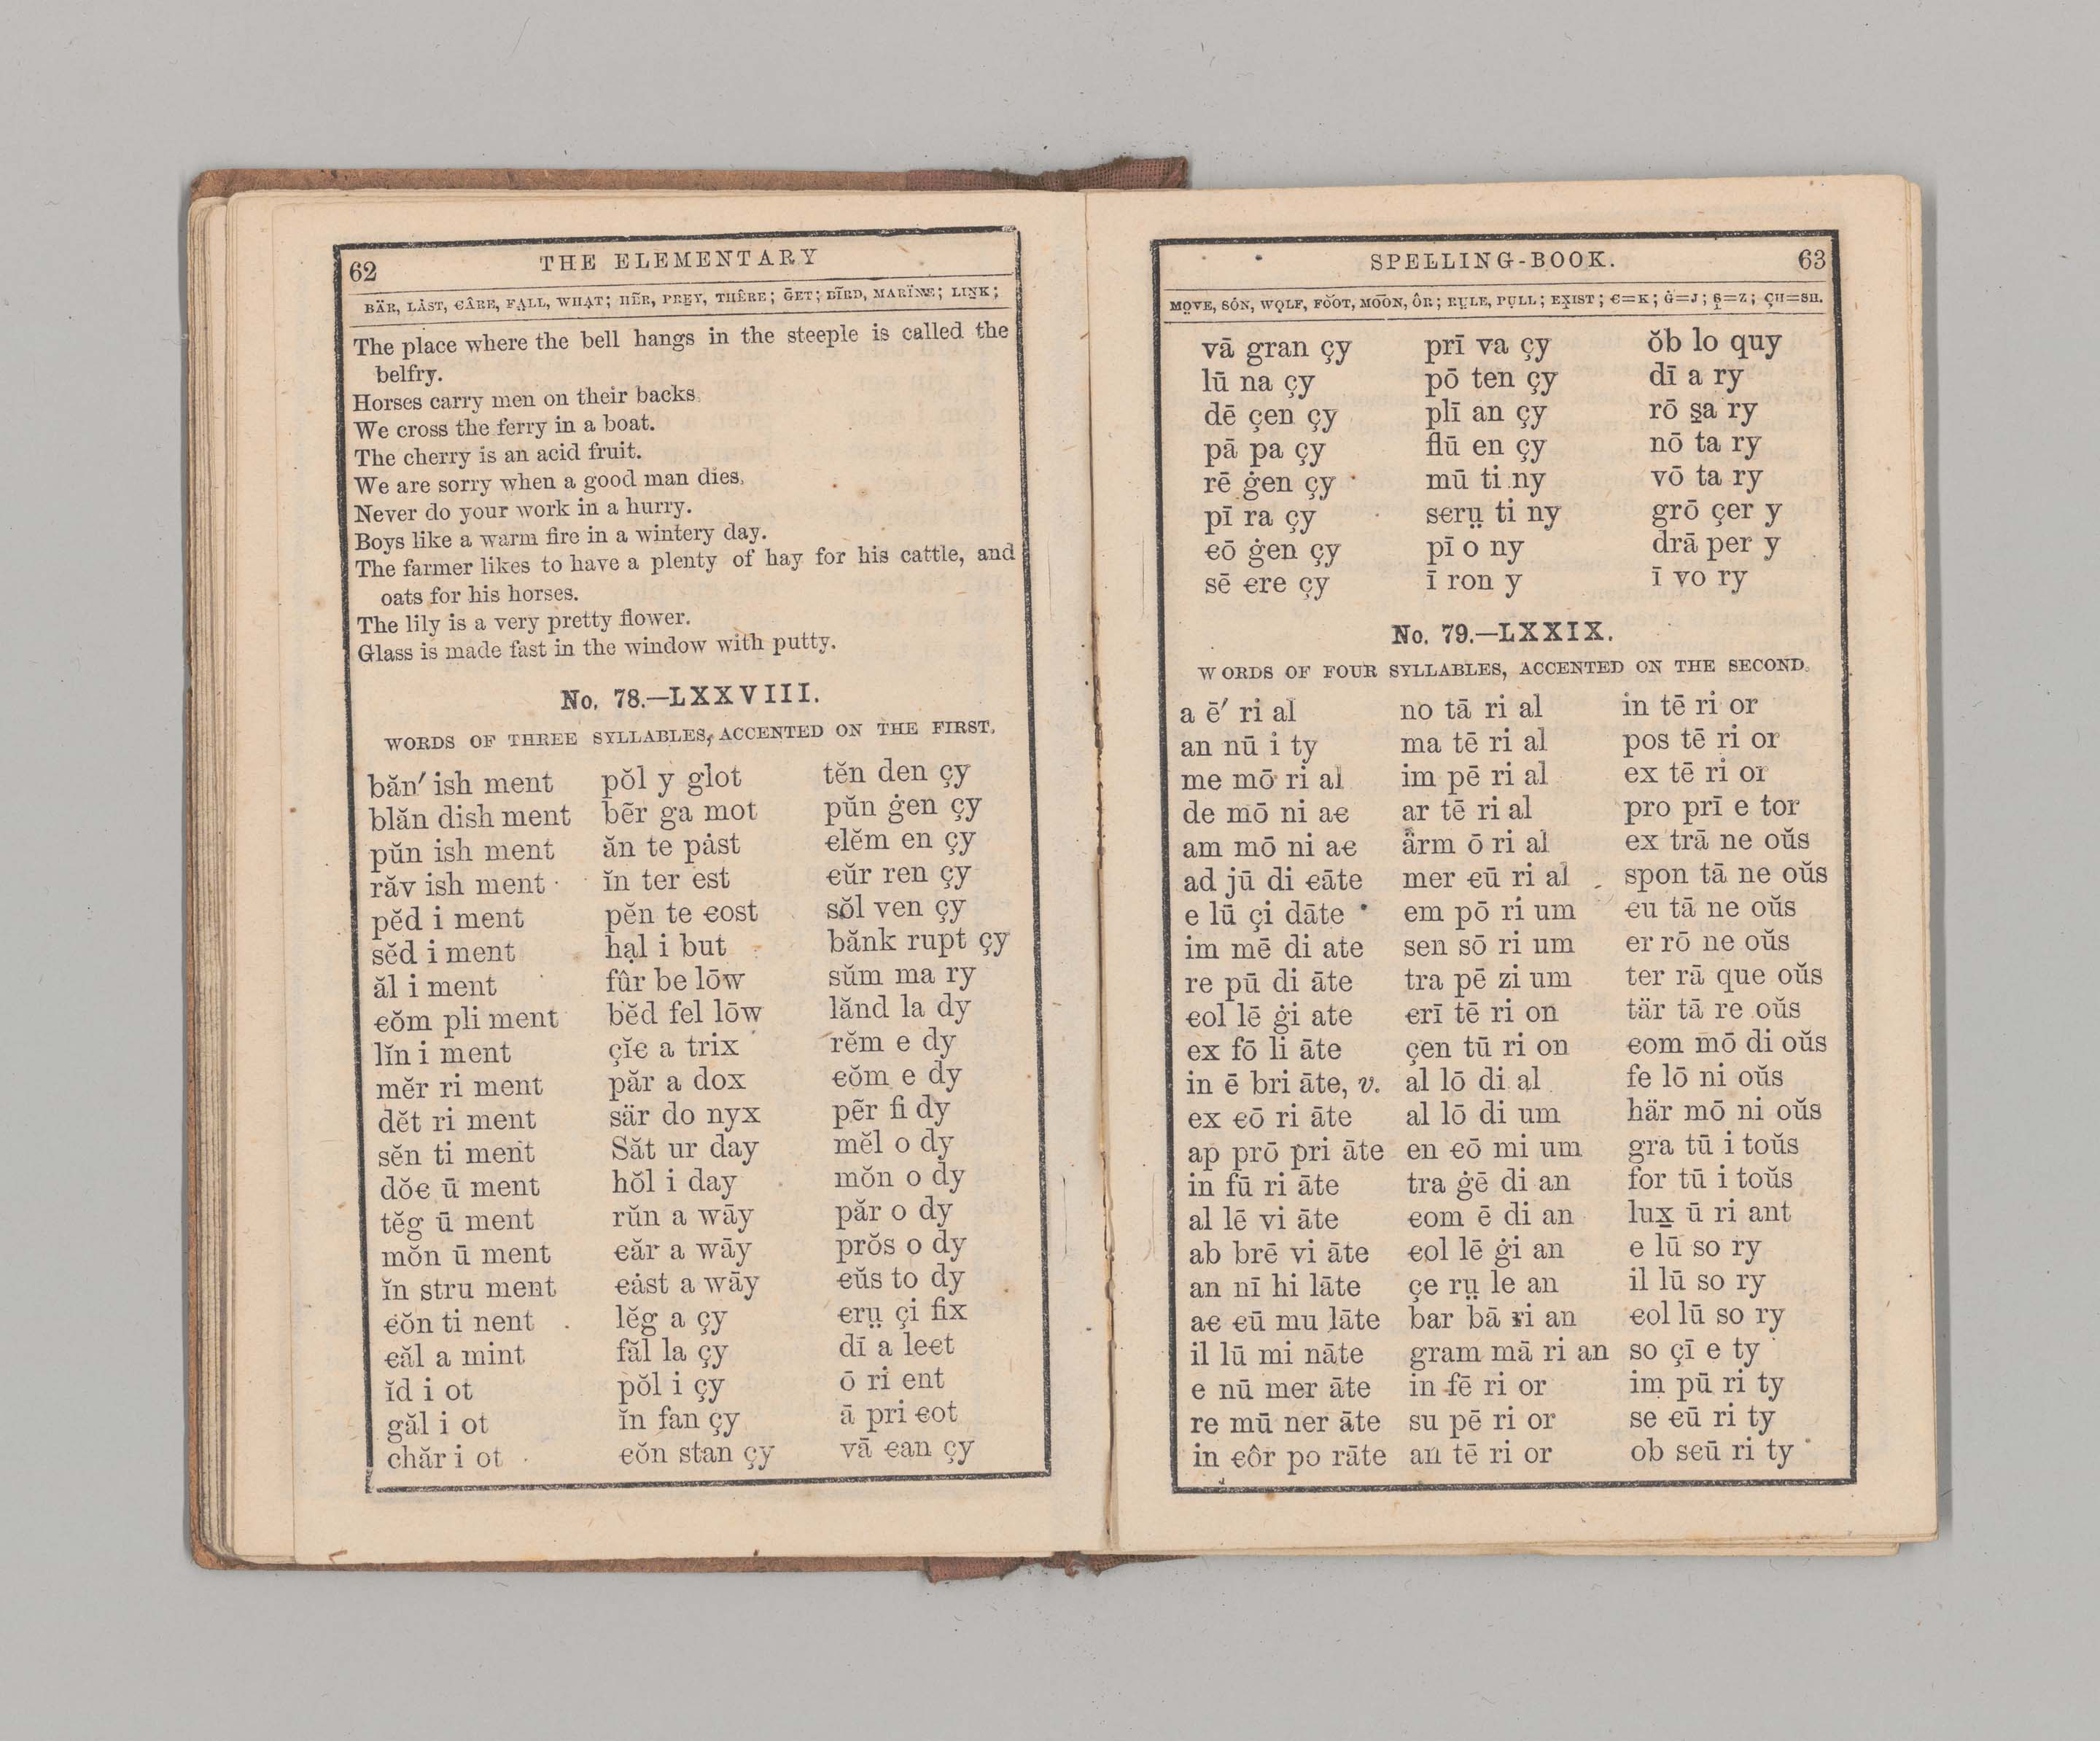 62 THE ELEMENTARY
BÄR, LȦST, ЄÂRE, FA̤LL, WHẠT; HẼR, PRE̱Y, THÊRE; ḠET; BĨRD, MARÏNE; LIṈK;
The place where the bell hangs in the steeple is called the
belfry.
Horses carry men on their backs.
We cross the ferry in a boat.
The cherry is an acid fruit.
We are sorry when a good man dies.
Never do your work in a hurry.
Boys like a warm fire in a wintery day.
The farmer likes to have a plenty of hay for his cattle, and
oats for his horses.
The lily is a very pretty flower.
Glass is made fast in the window with putty.
No. 78.—LXXVIII.
WORDS OF THREE SYLLABLES, ACCENTED ON THE FIRST.
băn′ ish ment pŏl y glot tĕn den çy
blăn dish ment bẽr ga mot pŭn ġen çy
pŭn ish ment ăn te pȧst єlĕm en çy
răv ish ment ĭn ter est єŭr ren çy
pĕd i ment pĕn te єost sŏl ven çy
sĕd i ment hạl i but bănk rupt çy
ăl i ment fûr be lōw sŭm ma ry
єŏm pli ment bĕd fel lōw lănd la dy
lĭn i ment çĭє a trix rĕm e dy
mĕr ri ment păr a dox єŏm e dy
dĕt ri ment sär do nyx pẽr fi dy
sĕn ti ment Săt ur day mĕl o dy
dŏє ū ment hŏl i day mŏn o dy
tĕg ū ment rŭn a wāy păr o dy
mŏn ū ment єăr a wāy prŏs o dy
ĭn stru ment єȧst a wāy єŭs to dy
єŏn ti nent lĕg a çy єrṳ çi fix
єăl a mint făl la çy dī a leєt
ĭd i ot pŏl i çy ō ri ent
găl i ot ĭn fan çy ā pri єot
chăr i ot єŏn stan çy vā єan çy
SPELLING-BOOK. 63
MO̤VE, SȮN, WỌLF, FO͝OT, MO͞ON, ÔR; RṲLE, PỤLL; EX̱IST; Є=K; Ġ=J; S̱=Z; ÇH=SH.
vā gran çy prī va çy ŏb lo quy
lū na çy pō ten çy dī a ry
dē çen çy plī an çy rō s̱a ry
pā pa çy flū en çy nō ta ry
rē ġen çy mū ti ny vō ta ry
pī ra çy sєrṳ ti ny grō çer y
єō ġen çy pī o ny drā per y
sē єre çy ī ron y ī vo ry
No. 79.—LXXIX.
WORDS OF FOUR SYLLABLES, ACCENTED ON THE SECOND.
a ē′ ri al no tā ri al in tē ri or
an nū i ty ma tē ri al pos tē ri or
me mō ri al im pē ri al ex tē ri or
de mō ni aє ar tē ri al pro prī e tor
am mō ni aє ärm ō ri al ex trā ne oŭs
ad jū di єāte mer єū ri al spon tā ne oŭs
e lū çi dāte em pō ri um єu tā ne oŭs
im mē di ate sen sō ri um er rō ne oŭs
re pū di āte tra pē zi um ter rā que oŭs
єol lē ġi ate єrī tē ri on tär tā re oŭs
ex fō li āte çen tū ri on єom mō di oŭs
in ē bri āte, v. al lō di al fe lō ni oŭs
ex єō ri āte al lō di um här mō ni oŭs
ap prō pri āte en єō mi um gra tū i toŭs
in fū ri āte tra ġē di an for tū i toŭs
al lē vi āte єom ē di an lux̱ ū ri ant
ab brē vi āte єol lē ġi an e lū so ry
an nī hi lāte çe rṳ le an il lū so ry
aє єū mu lāte bar bā ri an єol lū so ry
il lū mi nāte gram mā ri an so çī e ty
e nū mer āte in fē ri or im pū ri ty
re mū ner āte su pē ri or se єū ri ty
in єôr po rāte an tē ri or ob sєū ri ty